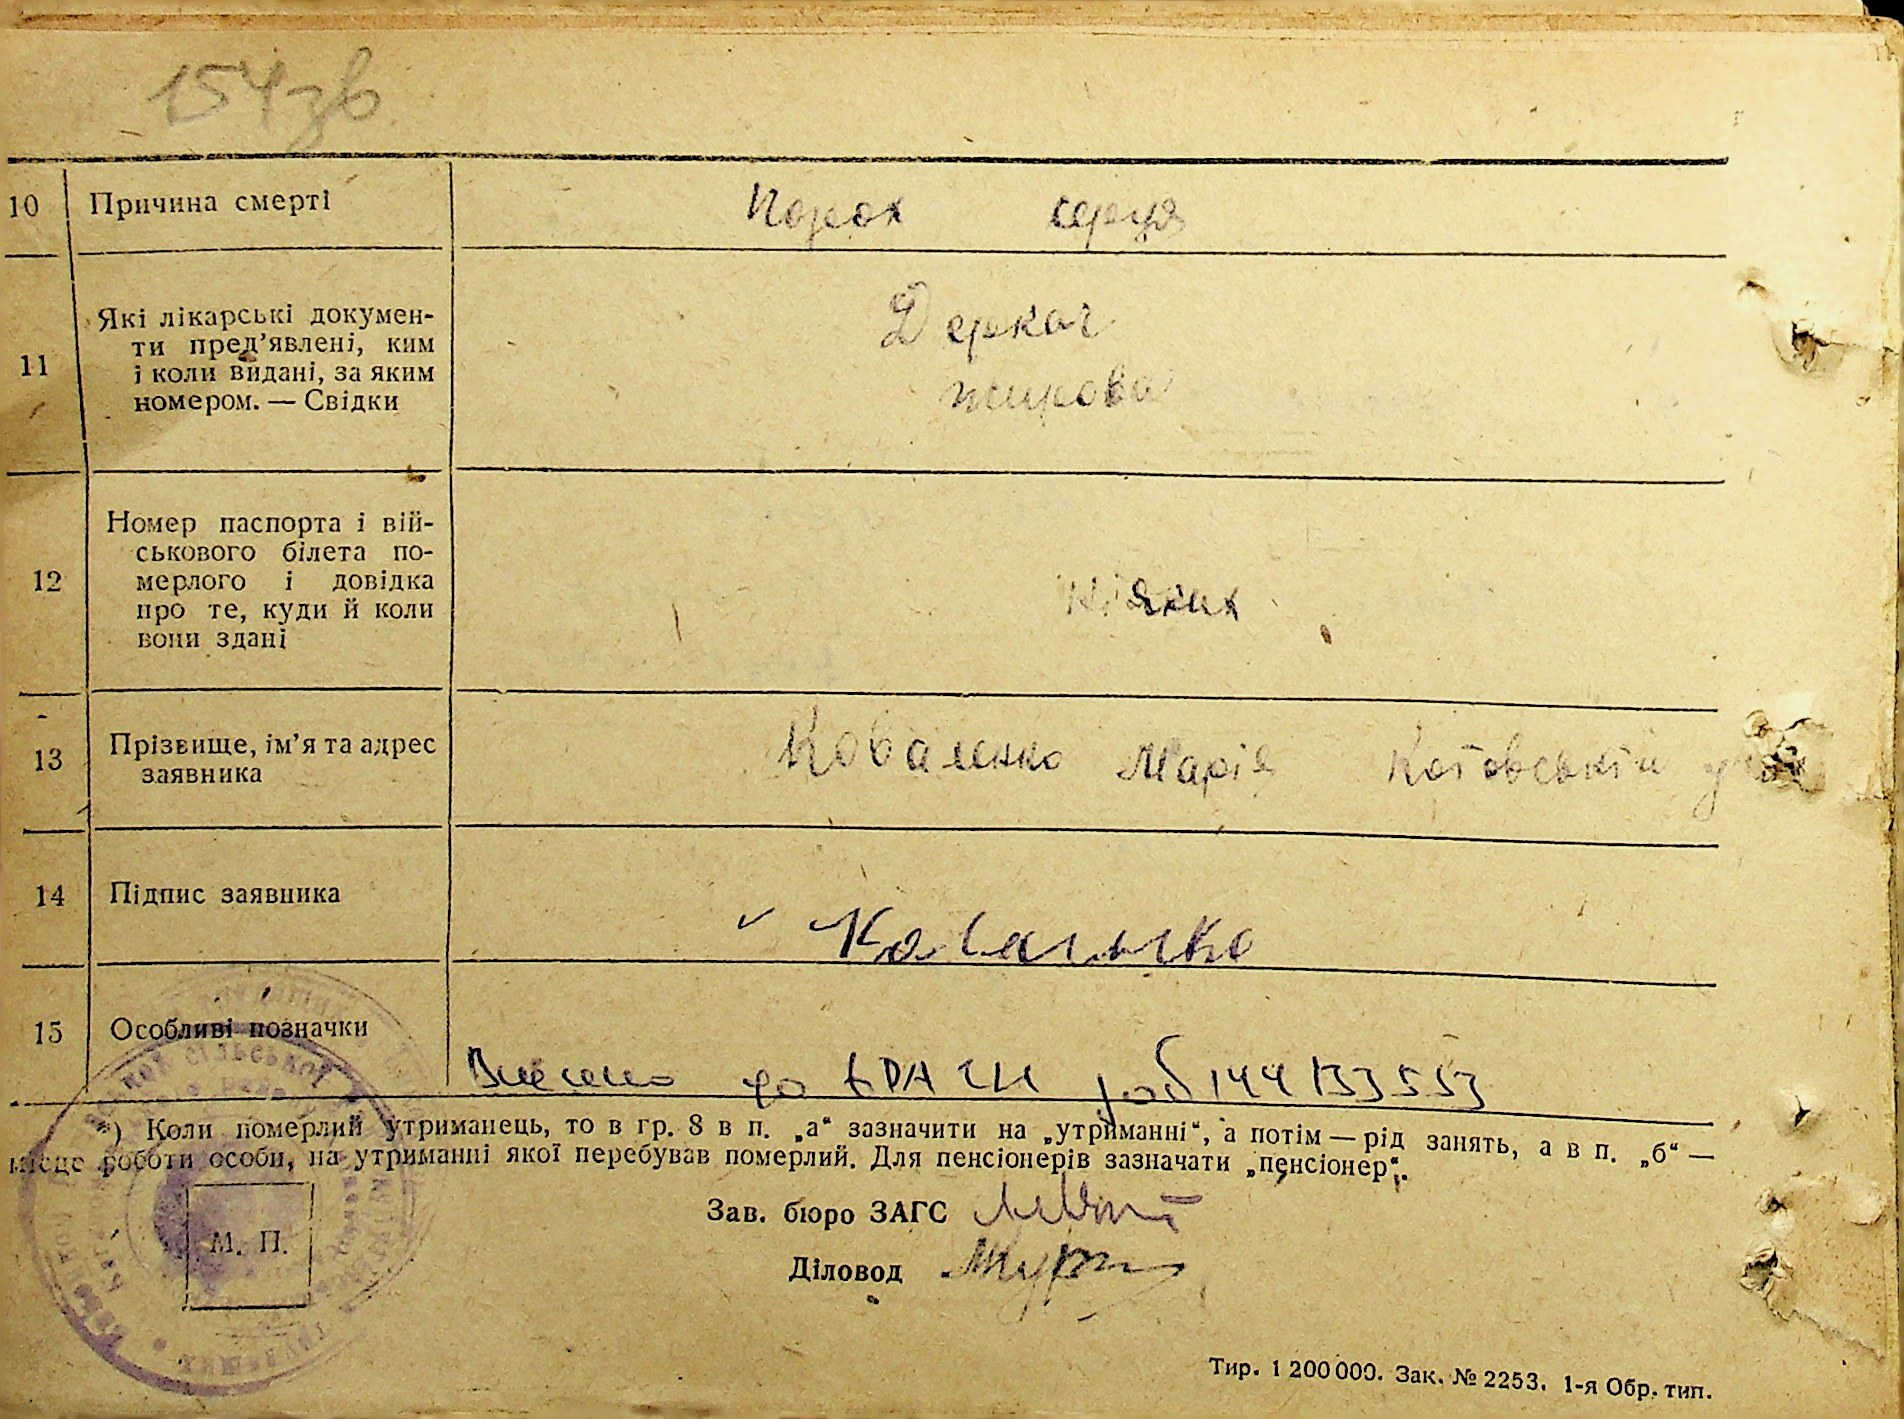 154зв
10 Причина смерті Порок серця
11 Які лікарські докумен-
ти пред’явлені, ким
і коли видані, за яким
номером. — Свідки
Деркач
12 Номер паспорта і вій-
ськового білета по-
мерлого і довідка
про те, куди й коли
вони здані
ніяких
13 Прізвище, ім’я та адрес
заявника
Коваленко Марія Котовський
14 Підпис заявника
Коваленко
15 Особливі позначки
Внесено до ДРАЦС 144133553
*) Коли померлий утриманець, то в гр. 8 в п. „а“ зазначити на „утриманні“, а потім — рід занять, а в п. „б“ —
місце роботи особи, на утриманні якої перебував померлий. Для пенсіонерів зазначати „пенсіонер“.
Зав. бюро ЗАГС
М. П.
Діловод
Тир. 1 200 000. Зак. № 2253. 1-я Обр. тип.